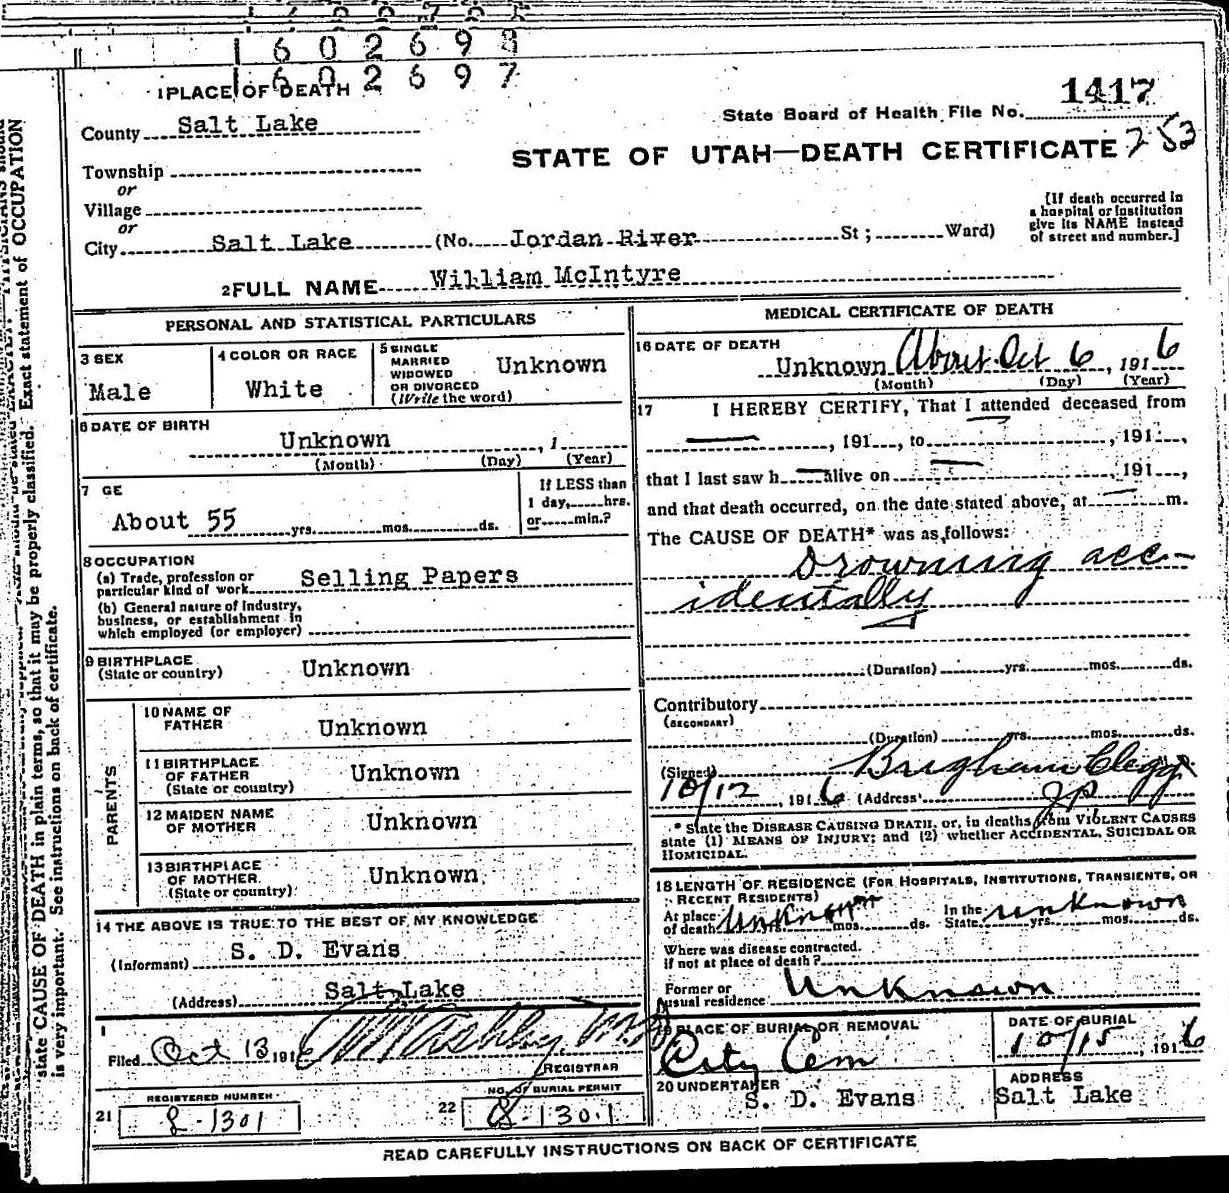 1602698
1602697
1 PLACE OF DEATH
State Board of Health File No. 1417
County Salt Lake
253
STATE OF UTAH—DEATH CERTIFICATE
Township
or
Village
or
City Salt Lake (No. Jordan River St; Ward)
[If death occurred in
a hospital or institution
give its NAME instead
of street and number.]
2 FULL NAME William McIntyre
PERSONAL AND STATISTICAL PARTICULARS
3 SEX
Male
4 COLOR OR RACE
White
5 SINGLE
MARRIED
WIDOWED
OR DIVORCED
(Write the word)
Unknown
6 DATE OF BIRTH
Unknown , 1
(Month) (Day) (Year)
7 GE
About 55 yrs. mos. ds.
If LESS than
1 day, hrs.
or min.?
8 OCCUPATION
(a) Trade, profession or
particular kind of work Selling Papers
(b) General nature of Industry,
business, or establishment in
which employed (or employer)
9 BIRTHPLACE
(State or country) Unknown
PARENTS
10 NAME OF
FATHER Unknown
11 BIRTHPLACE
OF FATHER
(State or country) Unknown
12 MAIDEN NAME
OF MOTHER Unknown
13 BIRTHPLACE
OF MOTHER
(State or country) Unknown
14 THE ABOVE IS TRUE TO THE BEST OF MY KNOWLEDGE
(Informant) S. D. Evans
(Address) Salt Lake
Filed Oct 13 1916
REGISTRAR
REGISTERED NUMBER
21 8-1301
NO. OF BURIAL PERMIT
22 8-1301
MEDICAL CERTIFICATE OF DEATH
16 DATE OF DEATH
Unknown About Oct 6, 1916
(Month) (Day) (Year)
17 I HEREBY CERTIFY, That I attended deceased from
, 191 , to , 191 ,
that I last saw h alive on , 191 ,
and that death occurred, on the date stated above, at m.
The CAUSE OF DEATH* was as follows:
Drowning acc-
identally
(Duration) yrs. mos. ds.
Contributory
(SECONDARY)
(Duration) yrs. mos. ds.
(Signed) Brigham Clegg
10/12, 1916 (Address) J.P.
* State the DISEASE CAUSING DEATH, or, in deaths from VIOLENT CAUSES
state (1) MEANS OF INJURY; and (2) whether ACCIDENTAL, SUICIDAL OR
HOMICIDAL.
18 LENGTH OF RESIDENCE (FOR HOSPITALS, INSTITUTIONS, TRANSIENTS, OR
RECENT RESIDENTS)
At place
of death Unknown mos. ds.
In the
State unknown yrs. mos. ds.
Where was disease contracted.
if not at place of death?
Former or
usual residence Unknown
19 PLACE OF BURIAL OR REMOVAL
City Cem
DATE OF BURIAL
10/15, 1916
20 UNDERTAKER
S. D. Evans
ADDRESS
Salt Lake
READ CAREFULLY INSTRUCTIONS ON BACK OF CERTIFICATE
Exact statement of OCCUPATION
state CAUSE OF DEATH in plain terms, so that it may be properly classified.
is very important. See instructions on back of certificate.